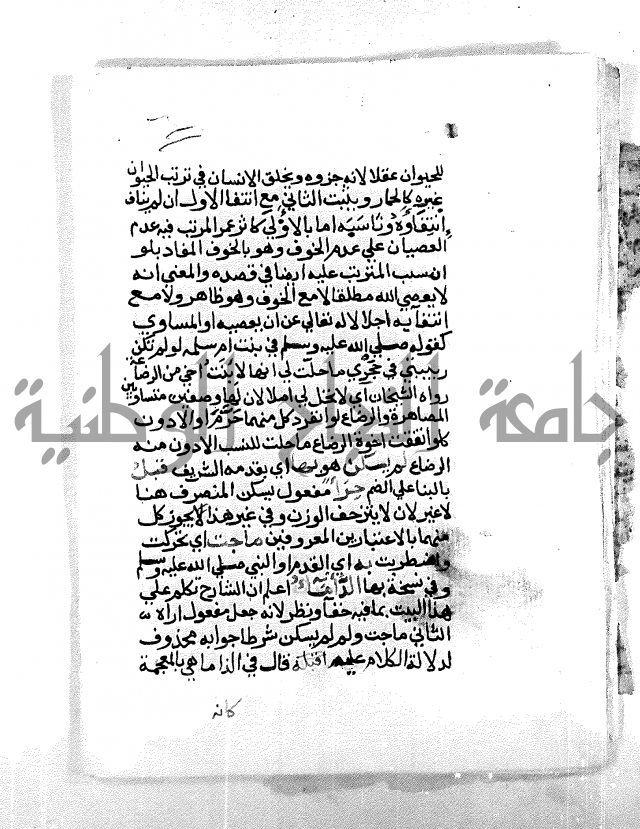 للحيوان عقلا لانه جزوه ويخلق الانسان في ترتب الحيوان
غيره كالحمار ويثبت الثاني مع انتفا الاول ان لم يناف
انتفاؤه وناسبه اما بالاولى كاثر عمر المرتب فيه عدم
العصيان علي عدم الخوف وهو بالخوف المفاد بلو
انسب المترتب عليه ايضا في قصده والمعني انه
لا يعصي الله مطلقا لا مع الخوف وهو ظاهر ولا مع
انتفايه اجلالا له تعالي عن ان يعصيه او المساوي
كقوله صلي الله عليه وسلم في بنت ام سلمه لو لم تكن
ربيبتي في حجري ما حلت لي انها لابنت اخي من الرضاعة
رواه الشيخان اي لا تحل لي اصلا لان لها وصفين متساويين
المصاهرة والرضاع لو انفرد كل منهما حرم او الادون
كلو انتفت اخوة الرضاع ما حلت للنسب الادون منه
الرضاع لم يسكن هو بها اي بقدمه الشريف قبل
بالبنا علي الضم حرا مفعول يسكن المنصرف هنا
لاغير لان لا ينزحف الوزن وفي غير هذا لا يجوز كل
منهما بالاعتبارين المعروفين ماجت اي تحركت
واضطربت به اي القدم او النبي صلي الله عليه وسلم
وفي نسخة بها الدأماء اعلم ان الشارح تكلم علي
هذا البيت بما فيه خفا ونظر لانه جعل مفعول اراه
الثاني ماجت ولم لم يسكن شرطا جوابه محذوف
لدلالة الكلام عليه قال في الداما هي بالمعجمة
كانه
جامعة النجاح الوطنية